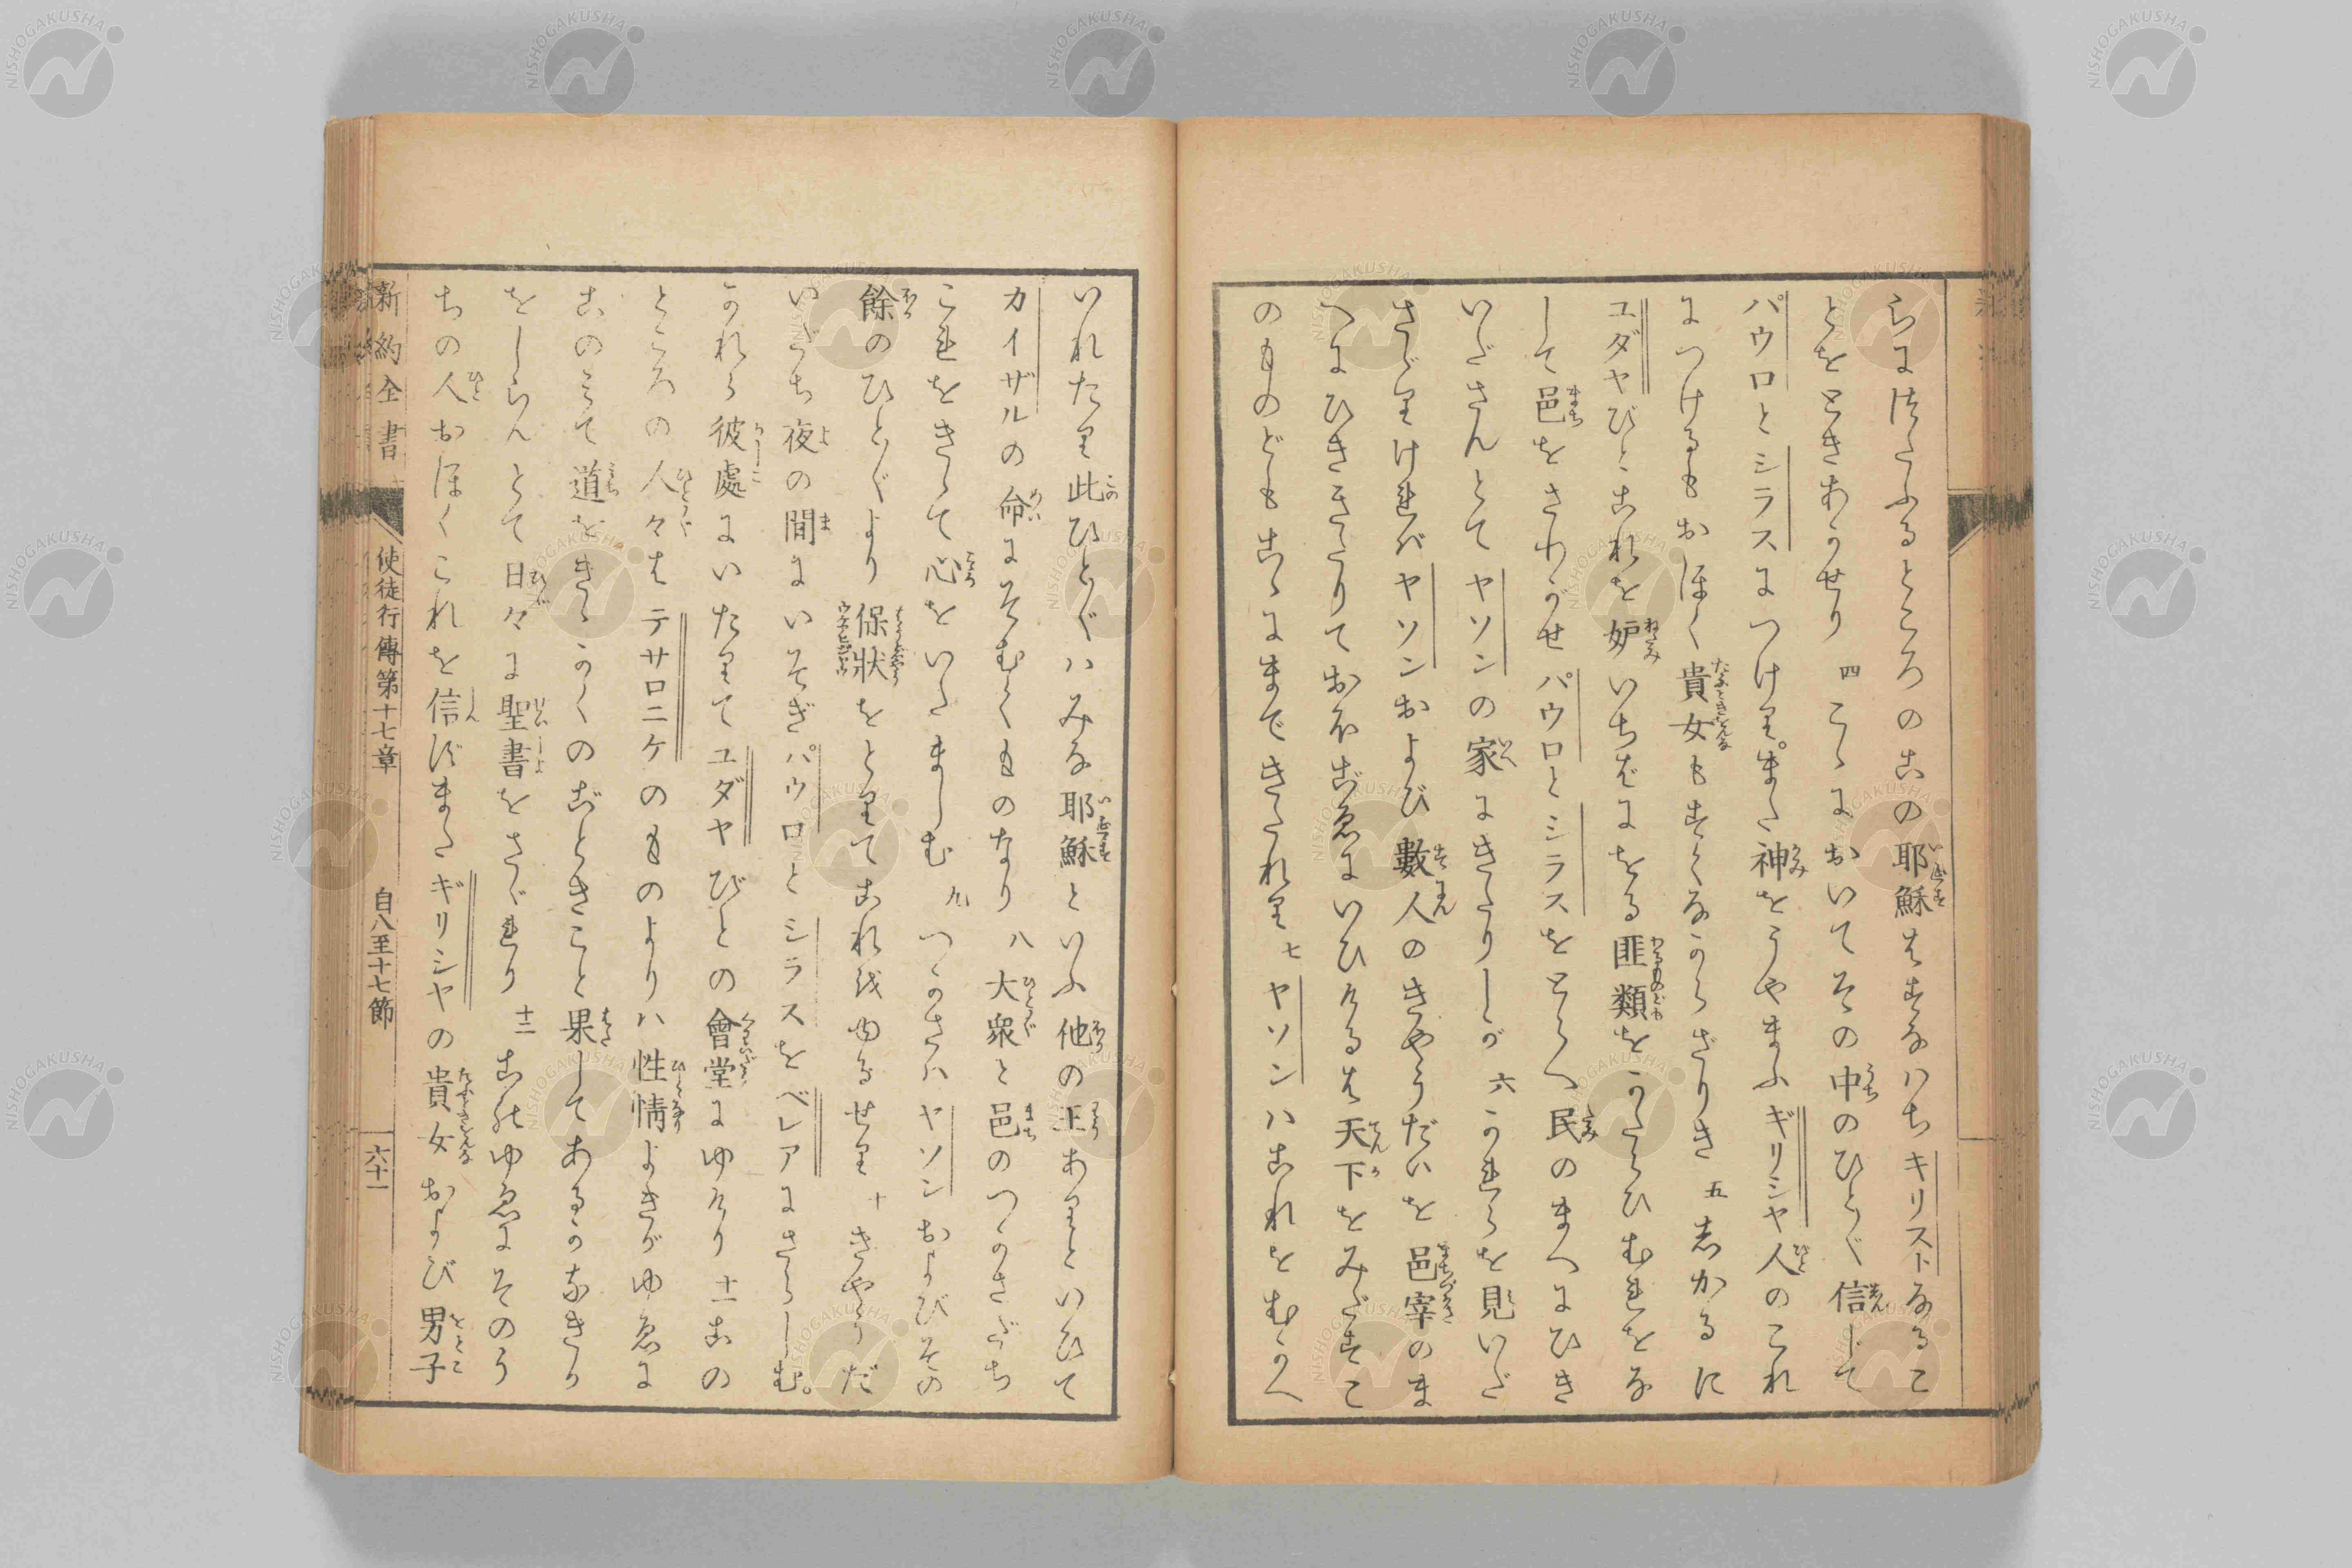 らにつたふるところのこの耶穌はすなハちキリストなるこ
とをときあかせり 四 こゝにおいてその中のひとゞ信じて
パウロとシラスにつけり。また神をうやまふギリシヤ人のこれ
につけるもおほく貴女もすくなからざりき 五 しかるに
ユダヤびとこれを妒いちばにをる匪類をかたらひむれをな
して邑をさわがせパウロとシラスをとらへ民のまへにひき
いださんとてヤソンの家にきたりしが 六 かれらを見いだ
さゞりければヤソンおよび數人のきやうだいを邑宰のま
へにひききたりておほごゑにいひけるは天下をみだすこ
のものどもこゝにまできたれり 七 ヤソンハこれをむかへ
いれたり此ひとゞハみな耶穌といふ他の王ありといひて
カイザルの命にそむくものなり 八 大衆と邑のつかさだち
これをきゝて心をいたましむ 九 つかさハヤソンおよびその
餘のひとゞより保狀をとりてこれをゆるせり 十 きやうだ
いだち夜の間にいそぎパウロとシラスをベレアにさらしむ。
かれら彼處にいたりてユダヤびとの會堂にゆけり 十一 この
ところの人々はテサロニケのものよりハ性情よきがゆゑに
このみて道をきゝかくのごときこと果してあるかなきか
をしらんとて日々に聖書をさゞれり 十二 このゆゑにそのう
ちの人おほくこれを信ずまたギリシヤの貴女および男子
新約全書 使徒行傳第十七章 自八至十七節 六十一